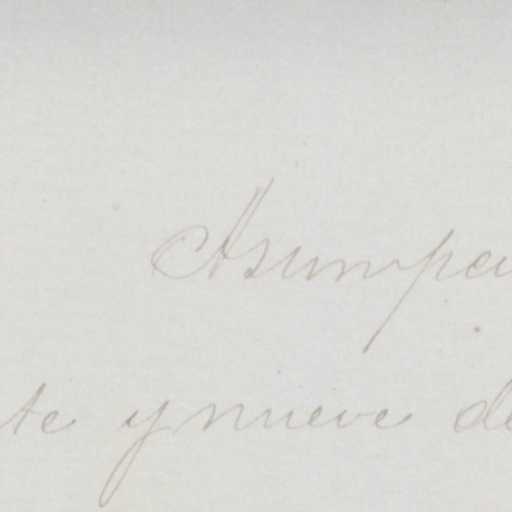 Asunpci
te y nueve de